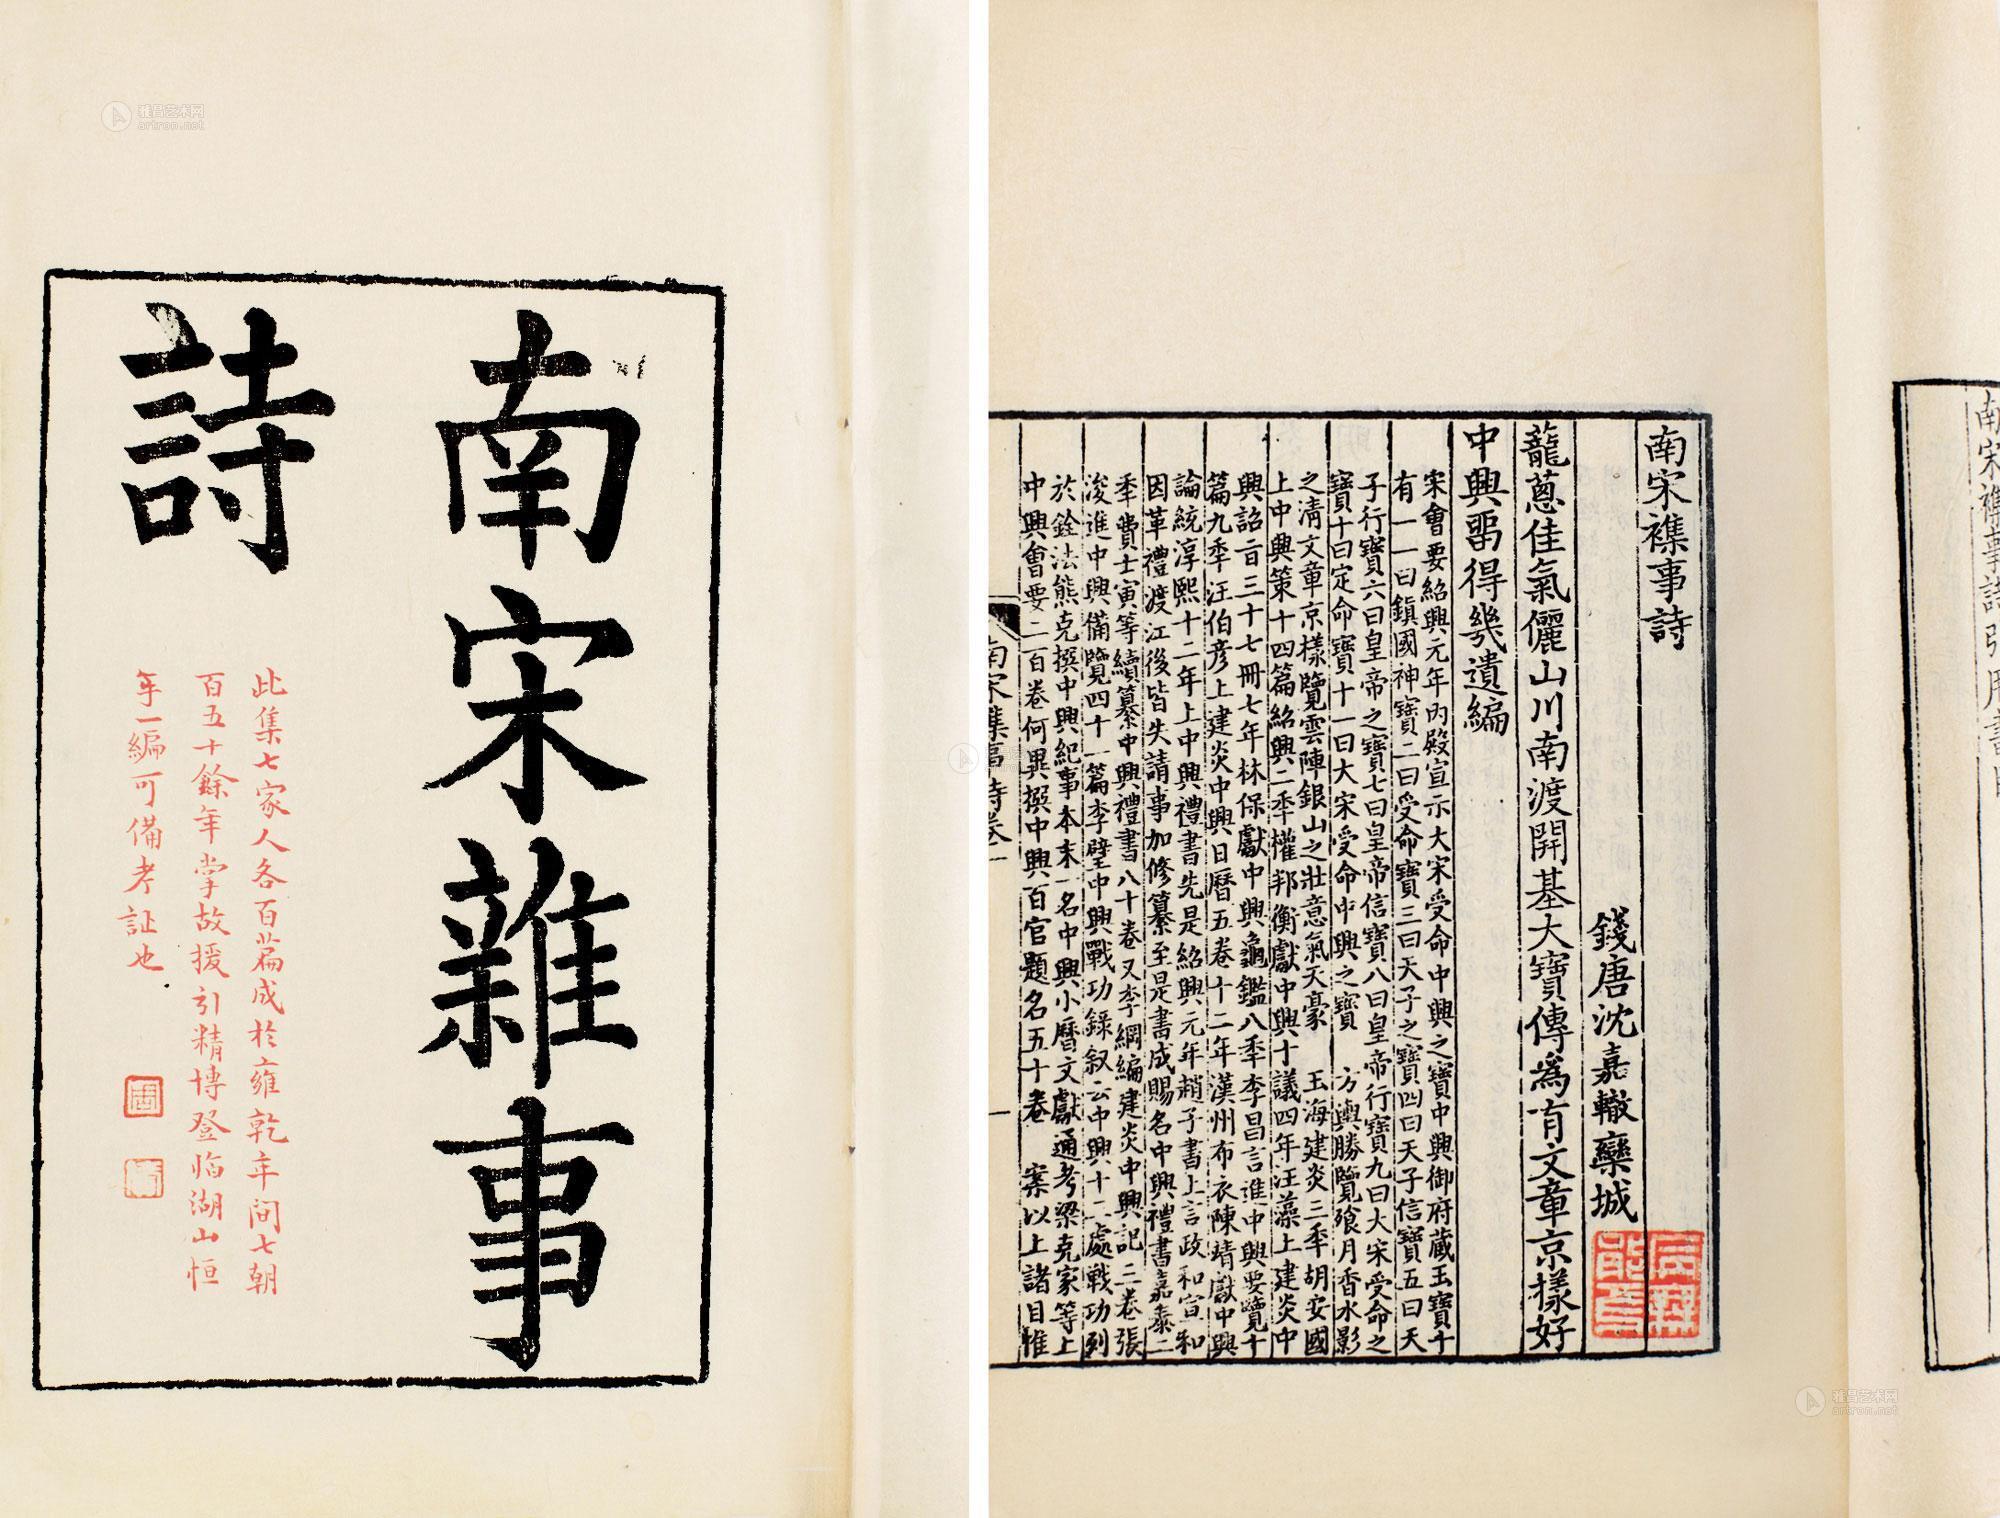 南宋雜事
詩
此集七家人各百篇成於雍乾年间七朝
百五十餘年掌故援引精博登临湖山恒
手一編可備考証也
南宋襍事詩
錢唐沈嘉轍欒城
蘢蔥佳氣儷山川南渡開基大寶傳為有文章京樣好
中興畱得幾遺編
宋會要紹興元年內殿宣示大宋受命中興之寶中興御府藏玉寶十
有一一曰鎮國神寶二曰受命寶三曰天子之寶四曰天子信寶五曰天
子行寶六曰皇帝之寶七曰皇帝信寶八曰皇帝行寶九曰大宋受命之
寶十曰定命寶十一曰大宋受命中興之寶 方輿勝覽飱月香水影
之淸文章京樣覽雲陣銀山之壯意氣天豪 玉海建炎三年胡安國
上中興策十四篇紹興二年權邦衡獻中興十議四年汪藻上建炎中
興詔旨三十七冊七年林保獻中興龜鑑八年李昌言進中興要覽十
篇九年汪伯彥上建炎中興日曆五卷十二年漢州布衣陳靖獻中興
論統淳熙十二年上中興禮書先是紹興元年趙子書上言政和宣和
因革禮渡江後皆失請事加修纂至是書成賜名中興禮書嘉泰二
年費士寅等續纂中興禮書八十卷又李綱編建炎中興記三卷張
浚進中興備覽四十一篇李壁中興戰功錄叙云中興十二處戰功列
於銓法熊克撰中興紀事本末一名中興小曆文獻通考梁克家等上
中興會要二百卷何異撰中興百官題名五十卷 案以上諸目惟
南宋襍事詩卷一
一
南宋襍事詩引用書目
雅昌艺术网
artron.net
雅昌艺术网
artron.net